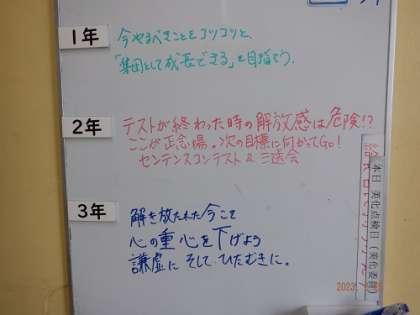 1年
今やるべきことをコツコツと、
「集団として成長できる」を目指そう。
2年
テストが終わった時の解放感は危険!?
ここが正念場。次の目標に向かってGo!
センテンスコンテスト&三送会
3年
解き放たれた今こそ
心の重心を下げよう
謙虚に そして ひたむきに。
本日 美化点検日(美化委員)
2023